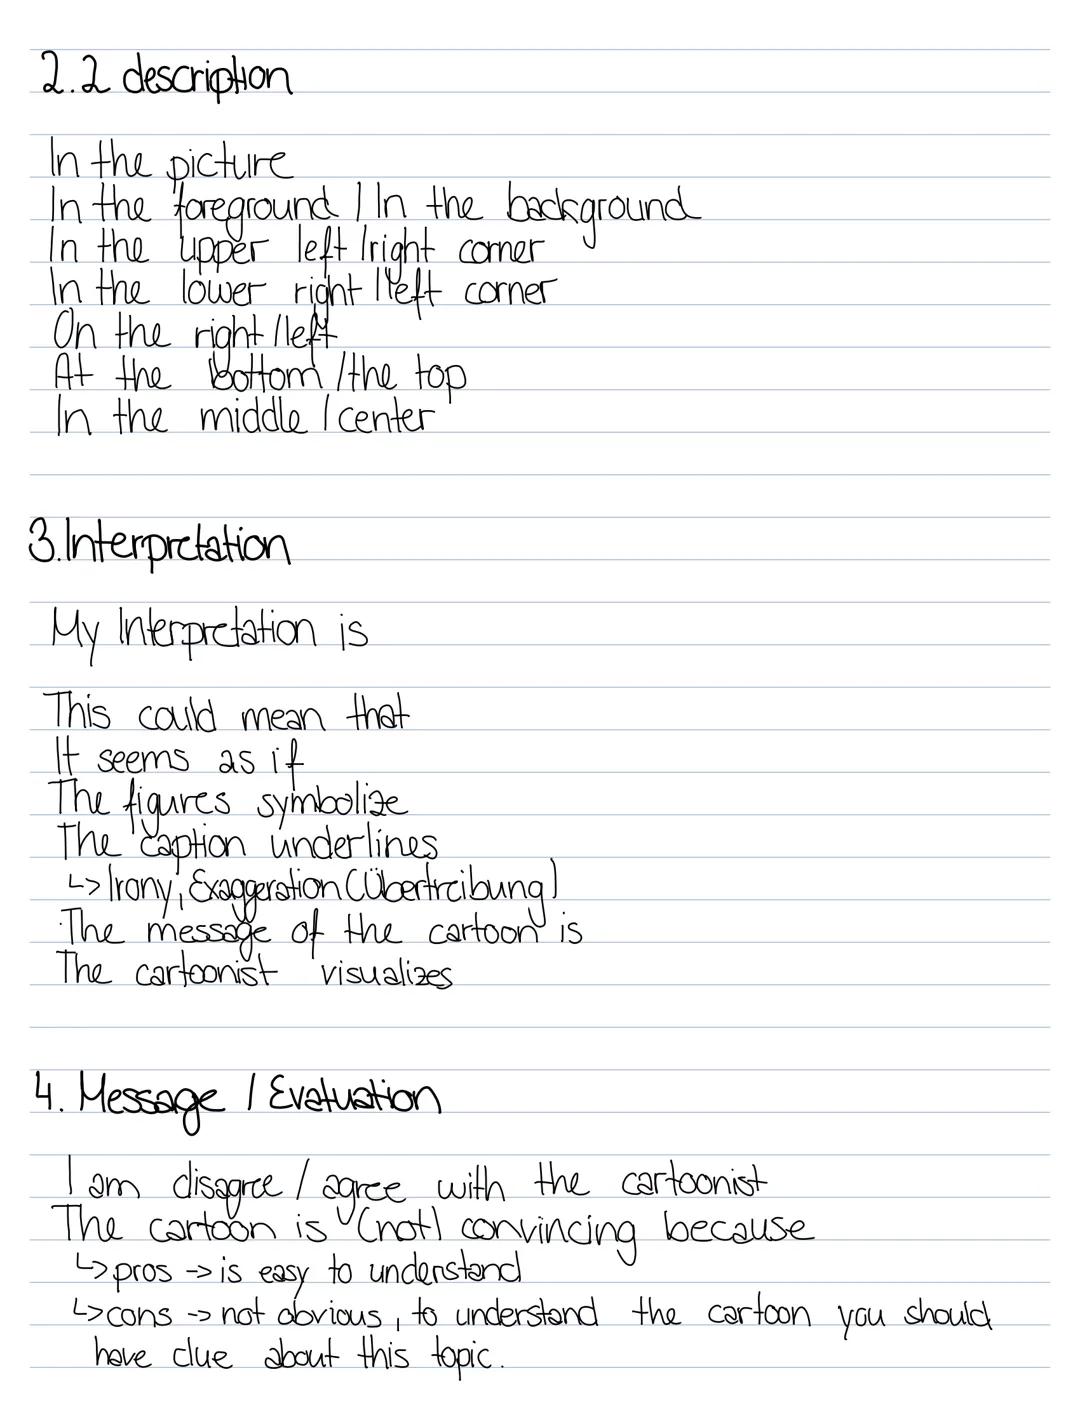 2.2 description
In the picture
In the foreground / In the background
In the upper left /right corner
In the lower right /left corner
On the right /left
At the bottom /the top
In the middle /center
3.Interpretation
My Interpretation is
This could mean that
It seems as if
The figures symbolize
The caption underlines
↳ Irony, Exaggeration (Übertreibung)
The message of the cartoon is
The cartoonist visualizes
4. Message / Evaluation
I am disagree / agree with the cartoonist
The cartoon is (not) convincing because
↳ pros -> is easy to understand
↳ cons -> not obvious, to understand the cartoon you should
have clue about this topic.